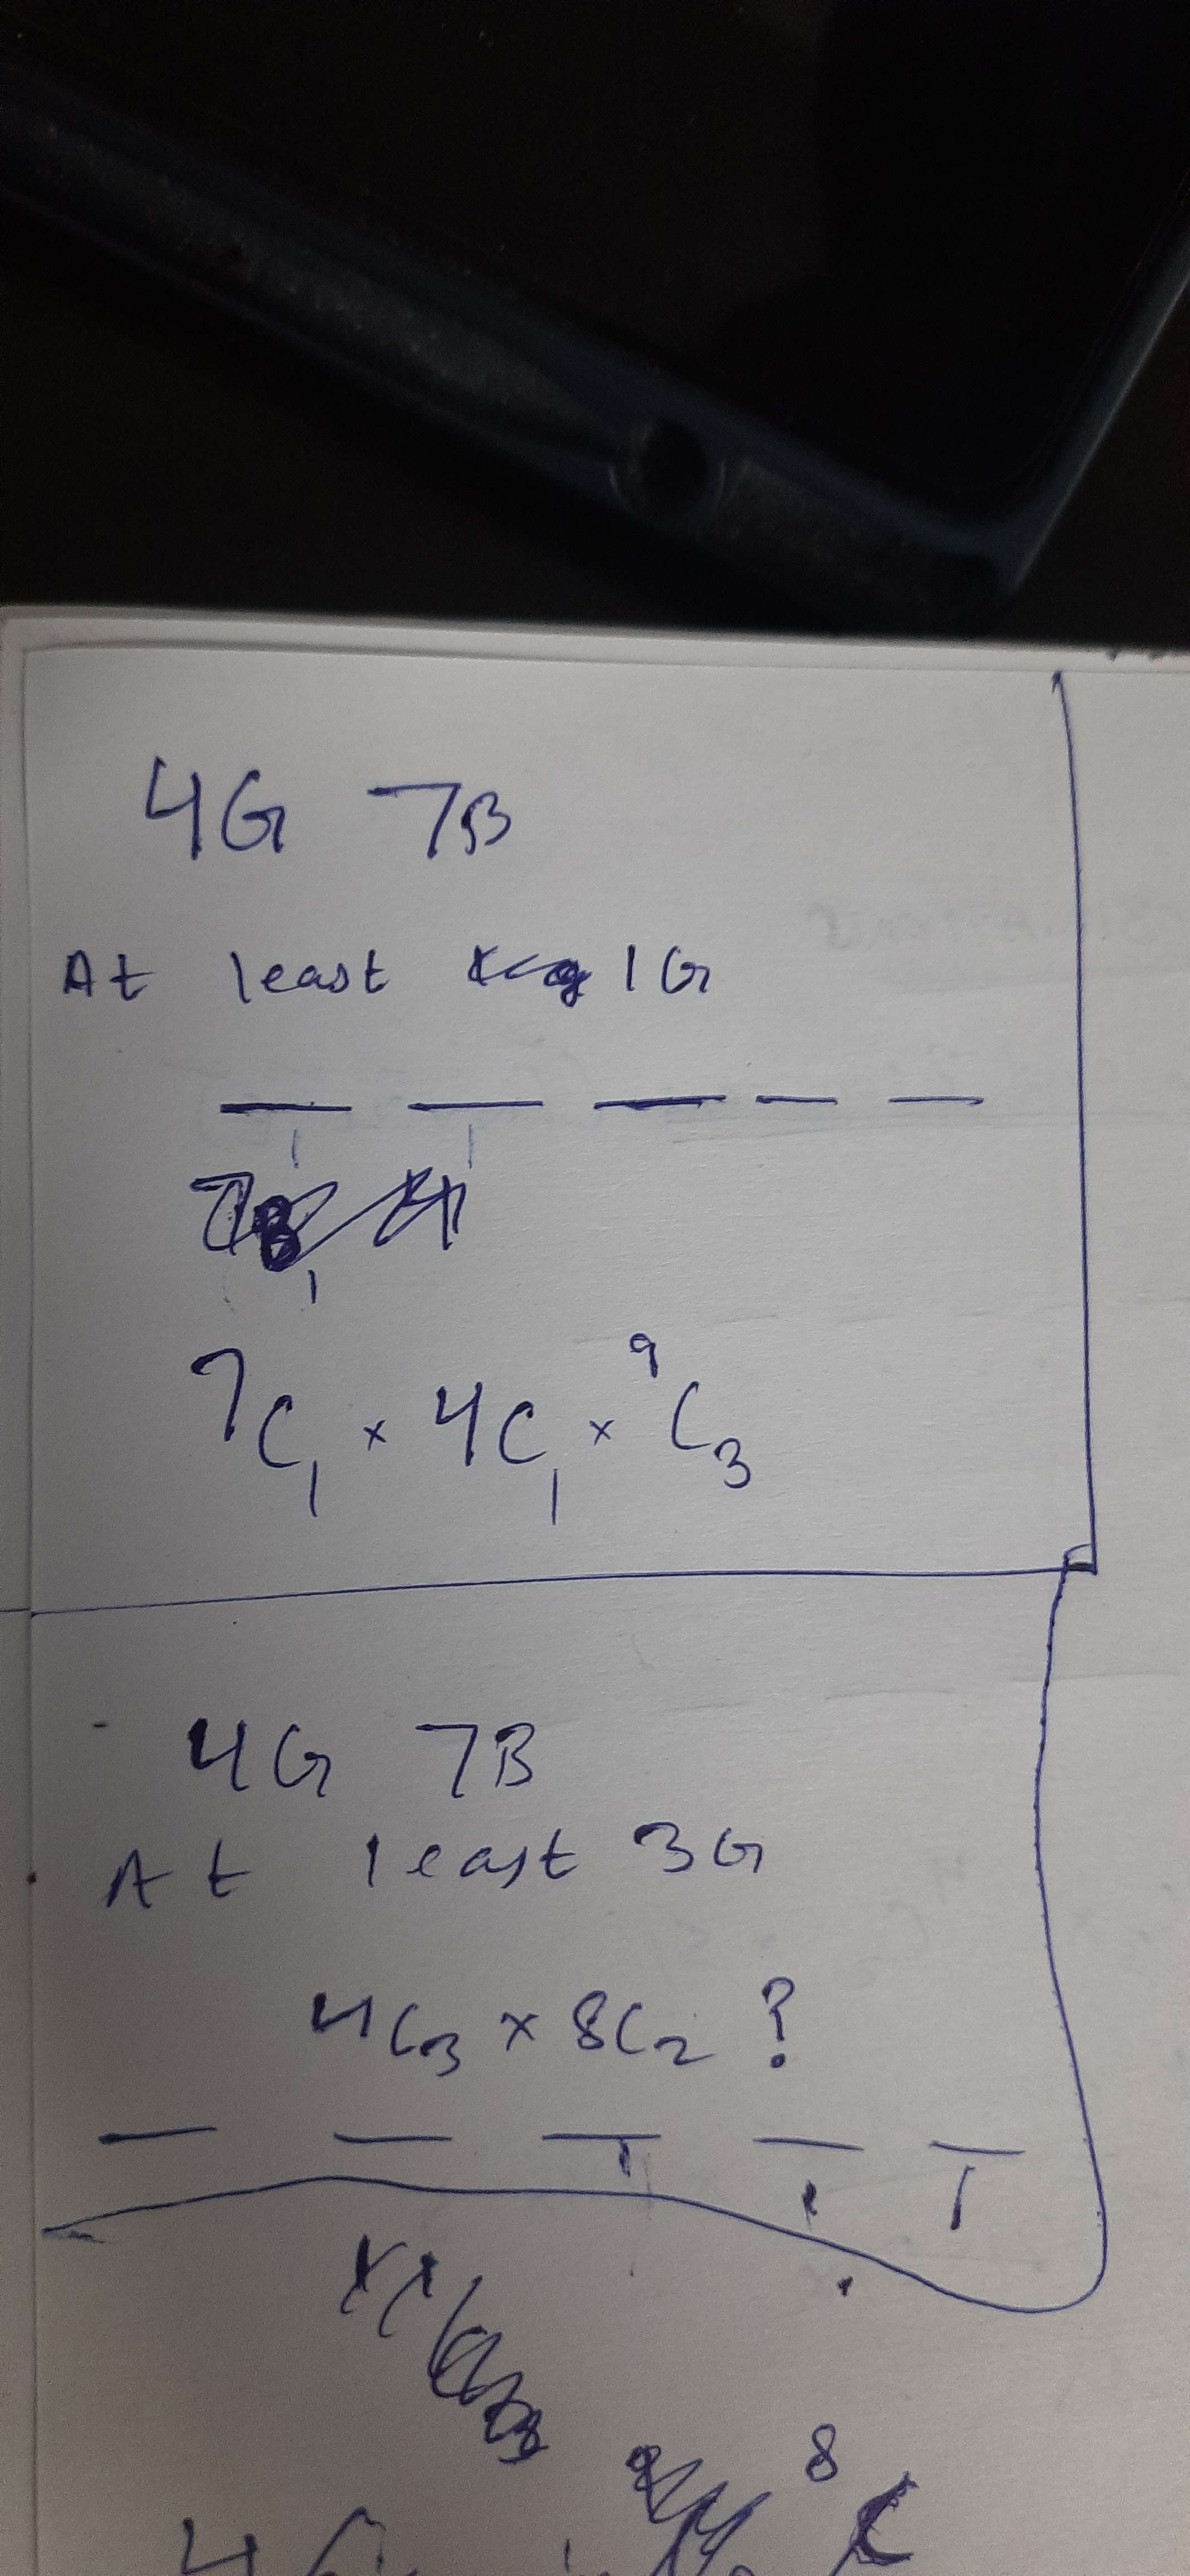 4G 7B
At least 1G
7C1 × 4C1 × 9C3
4G 7B
At least 3G
4C3 × 8C2 ?
8C